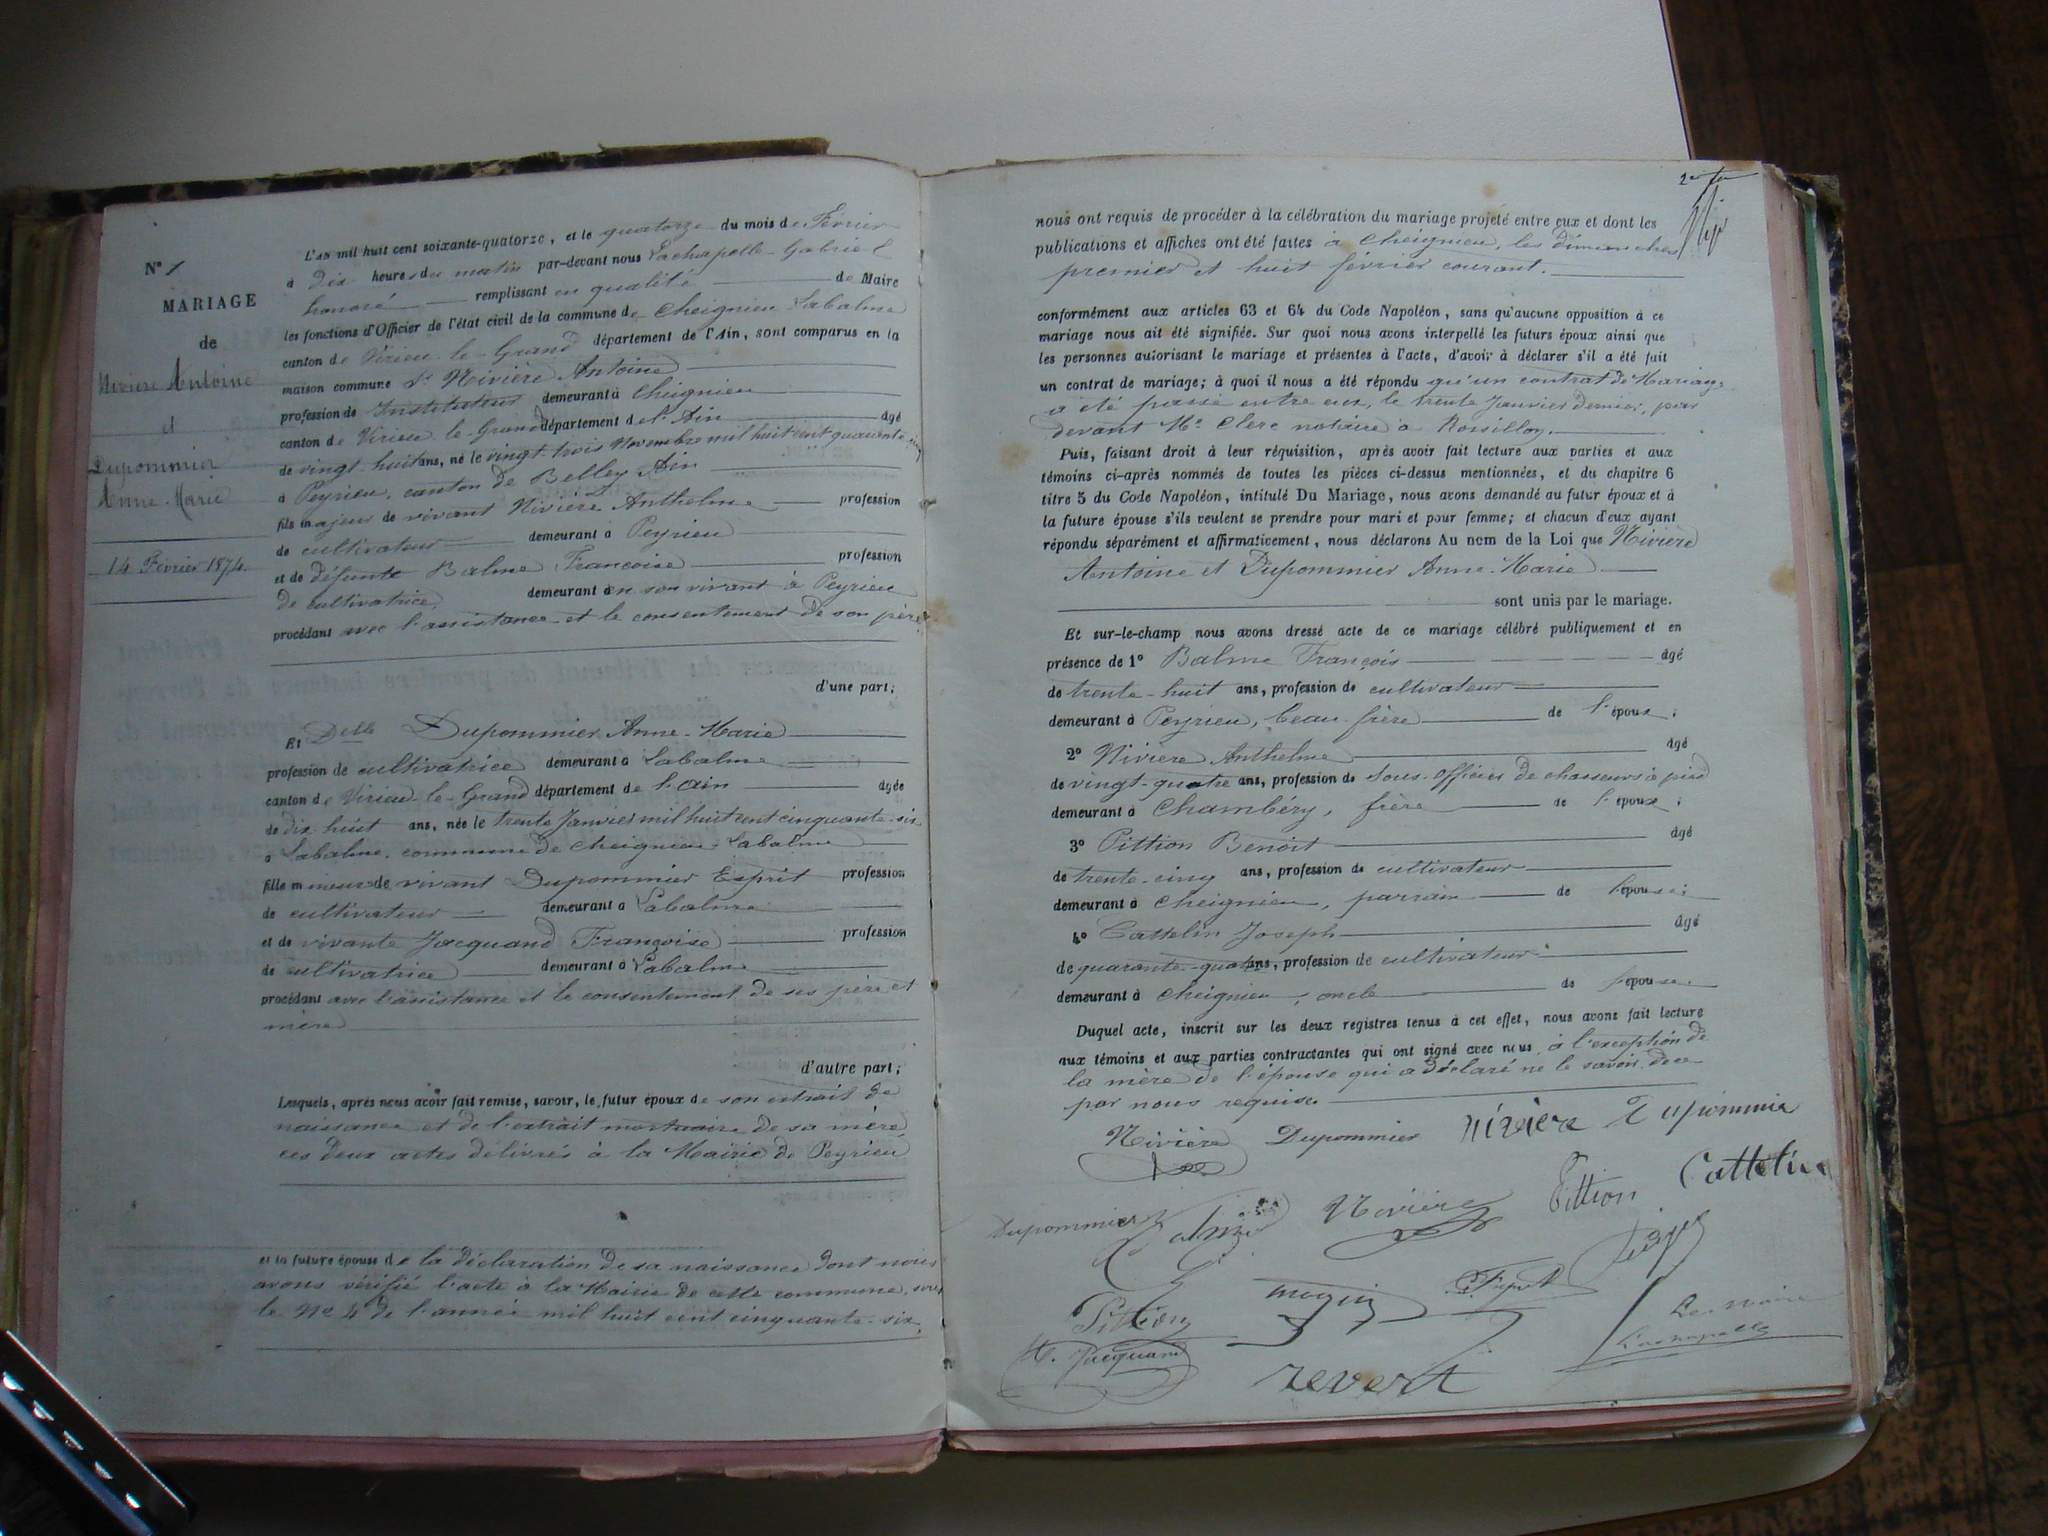 N° 1
MARIAGE
de
Nivière Antoine
et
Dupommier
Anne-Marie
14 Février 1874.
L'an mil huit cent soixante-quatorze, et le quatorze du mois de Février
à dix heures du matin par-devant nous Lachapelle Gabriel
honoré remplissant en qualité de Maire
les fonctions d'Officier de l'état civil de la commune de Cheignieu Labalme
canton de Virieu-le-Grand département de l'Ain, sont comparus en la
maison commune Sr Nivière Antoine
profession de Instituteur demeurant à Cheignieu
canton de Virieu le-Grand département de l'Ain âgé
de vingt-huit ans, né le vingt trois Novembre mil huit cent quarante cinq
à Peyrieu, canton de Belley Ain
fils majeur de vivant Nivière Anthelme profession
de cultivateur demeurant à Peyrieu
et de défunte Balme Françoise profession
de cultivatrice demeurant en son vivant à Peyrieu
procédant avec l'assistance et le consentement de son père
d'une part;
Et Delle Dupommier Anne-Marie
profession de cultivatrice demeurant à Labalme
canton de Virieu-le-Grand département de l'ain âgée
de dix-huit ans, née le trente Janvier mil huit cent cinquante-six
à Labalme, commune de Cheignieu-Labalme
fille mineure de vivant Dupommier Esprit profession
de cultivateur demeurant à Labalme
et de vivante Jacquand Françoise profession
de cultivatrice demeurant à Labalme
procédant avec l'assistance et le consentement de ses père et
mère
d'autre part;
Lesquels, après nous avoir fait remise, savoir, le futur époux de son extrait de
naissance et de l'extrait mortuaire de sa mère
ces deux actes délivrés à la Mairie de Peyrieu
et la future épouse de la déclaration de sa naissance dont nous
avons vérifié l'acte à la Mairie de cette commune, sous
le No 4 de l'année mil huit cent cinquante-six.
nous ont requis de procéder à la célébration du mariage projeté entre eux et dont les
publications et affiches ont été faites à Cheignieu, les dimanches
premier et huit février courant.
conformément aux articles 63 et 64 du Code Napoléon, sans qu'aucune opposition à ce
mariage nous ait été signifiée. Sur quoi nous avons interpellé les futurs époux ainsi que
les personnes autorisant le mariage et présentes à l'acte, d'avoir à déclarer s'il a été fait
un contrat de mariage; à quoi il nous a été répondu qu'un contrat de Mariage
a été passé entre eux, le trente Janvier dernier, par
devant Me Clerc notaire à Rossillon.
Puis, faisant droit à leur réquisition, après avoir fait lecture aux parties et aux
témoins ci-après nommés de toutes les pièces ci-dessus mentionnées, et du chapitre 6
titre 5 du Code Napoléon, intitulé Du Mariage, nous avons demandé au futur époux et à
la future épouse s'ils veulent se prendre pour mari et pour femme; et chacun d'eux ayant
répondu séparément et affirmativement, nous déclarons Au nom de la Loi que Nivière
Antoine et Dupommier Anne-Marie
sont unis par le mariage.
Et sur-le-champ nous avons dressé acte de ce mariage célébré publiquement et en
présence de 1° Balme François âgé
de trente-huit ans, profession de cultivateur
demeurant à Peyrieu, beau-frère de l'époux;
2° Nivière Anthelme âgé
de vingt-quatre ans, profession de Sous-officier de chasseurs à pied
demeurant à Chambéry, frère de l'époux;
3° Pittion Benoit âgé
de trente-cinq ans, profession de cultivateur
demeurant à Cheignieu, parrain de l'épouse;
4° Cattelin Joseph âgé
de quarante-quatre ans, profession de cultivateur
demeurant à Cheignieu, oncle de l'épouse.
Duquel acte, inscrit sur les deux registres tenus à cet effet, nous avons fait lecture
aux témoins et aux parties contractantes qui ont signé avec nous, à l'exception de
la mère de l'épouse qui a déclaré ne le savoir, de ce
par nous requise
Nivière Dupommier nivière Dupommier
Dupommier Balme Nivière Pittion Cattelin
Pittion
Jacquand revert
Le Maire
Lachapelle